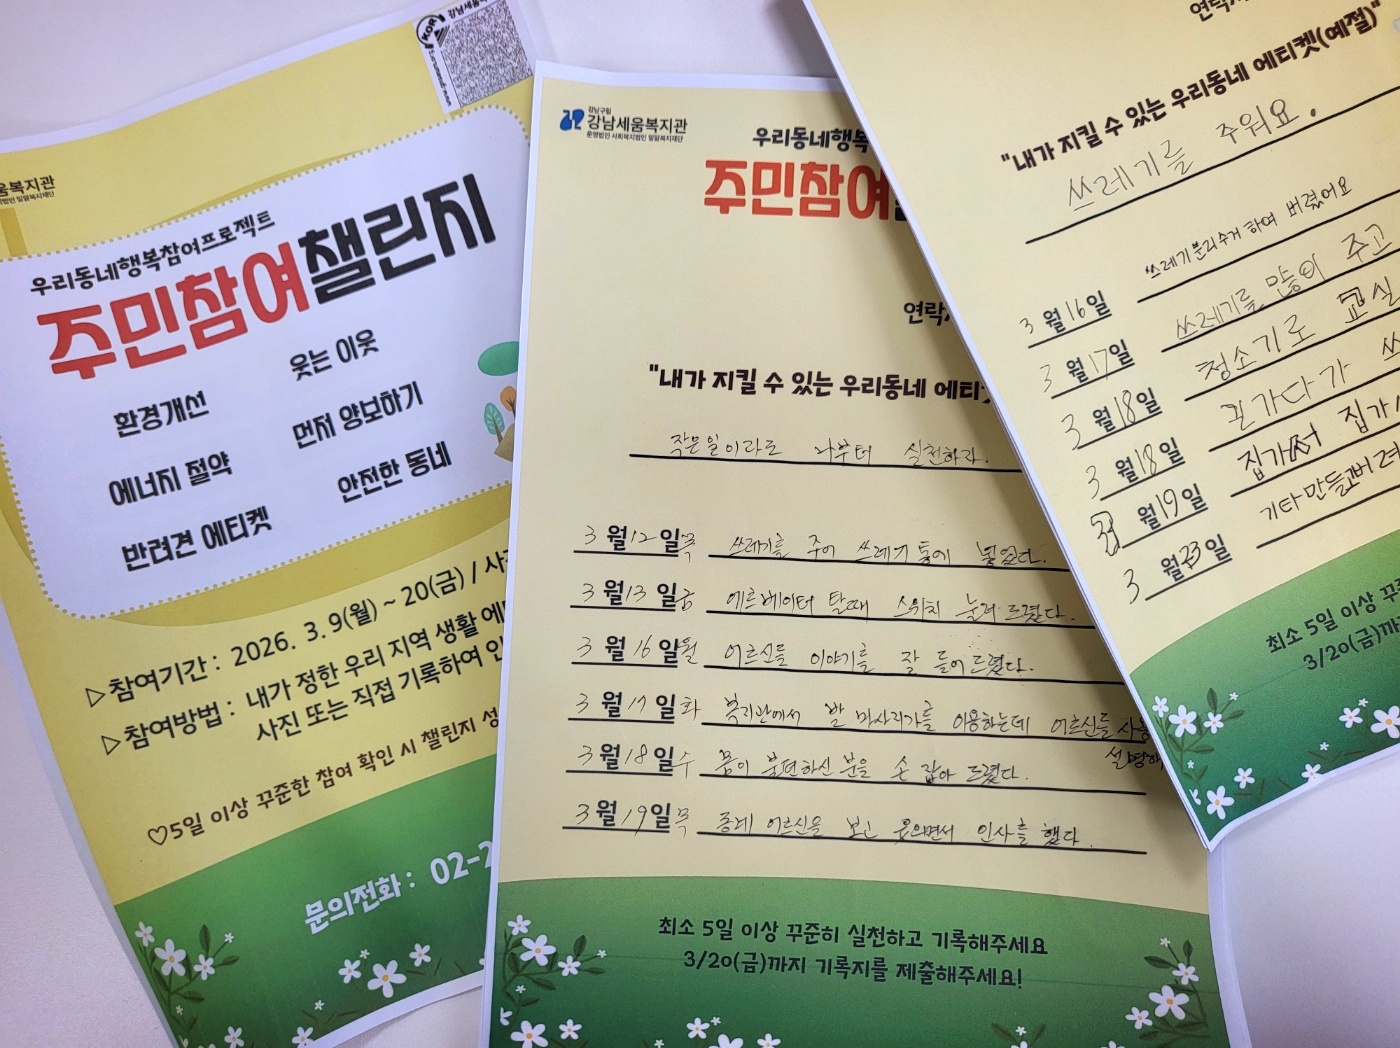 강남세움복
움복지관
우리동네행복참여프로젝트
주민참여챌린지
환경개선
웃는 이웃
에너지 절약
먼저 양보하기
반려견 에티켓
안전한 동네
▷참여기간 : 2026. 3. 9(월) ~ 20(금) / 사
▷참여방법 : 내가 정한 우리 지역 생활 에
사진 또는 직접 기록하여 인
♡5일 이상 꾸준한 참여 확인 시 챌린지 성
문의전화 : 02-2
강남구립
강남세움복지관
운영법인 사회복지법인 밀알복지재단
우리동네행복
주민참여
연락
"내가 지킬 수 있는 우리동네 에티
작은일이라도 나부터 실천하자.
3월12일목 쓰레기를 주어 쓰레기 통에 넣었다.
3월13일금 에르베이터 탈때 스위치 눌러 드렸다.
3월16일월 어르신들 이야기를 잘 들어 드렸다.
3월17일화 복지관에서 발 마사리가를 이용하는데 어르신들 사용
설명해
3월18일수 몸이 불편하신 분을 손 잡아 드렸다.
3월19일목 동네 어르신을 보고 웃으면서 인사를 했다.
최소 5일 이상 꾸준히 실천하고 기록해주세요
3/20(금)까지 기록지를 제출해주세요!
연락
"내가 지킬 수 있는 우리동네 에티켓(예절)"
쓰레기를 주워요.
3월16일 쓰레기분리수거하여 버렸어요
3월17일 쓰레기를 많이 주고
3월18일 청소기로 교실
3월18일 길가다가 쓰
3월19일 집가서 집가
3월23일 기타만들고버려
최소 5일 이상 꾸
3/20(금)까